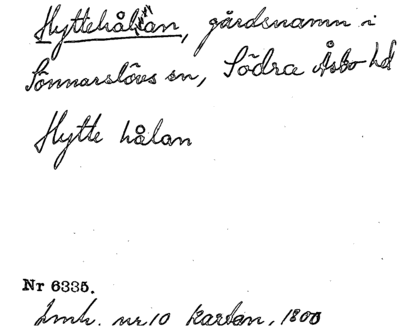 Hyttehålan, gårdsnamn i
Sönnarslövs sn, Södra Åsbo hd
Hytte hålan
Nr 6335.
Lmh. nr 10 kartan, 1800